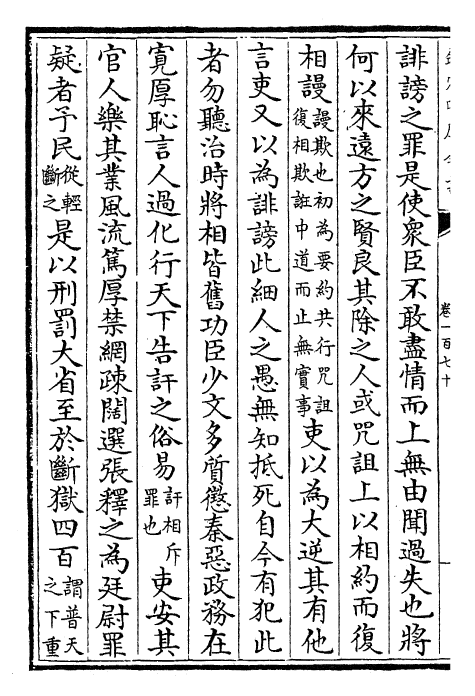 誹謗之罪是使衆臣不敢盡情而上無由聞過失也將
何以來遠方之賢良其除之人或咒詛上以相約而復
相謾謾欺也初為要約共行咒詛復相欺誑中道而止無實事吏以為大逆其有他
言吏又以為誹謗此細人之愚無知抵死自今有犯此
者勿聽治時將相皆舊功臣少文多質懲秦惡政務在
寛厚恥言人過化行天下告訐之俗易訐相斥罪也吏安其
官人樂其業風流篤厚禁網疎闊選張釋之為廷尉罪
疑者予民從輕斷之是以刑罰大省至於斷獄四百謂普天之下重
卷一百七十